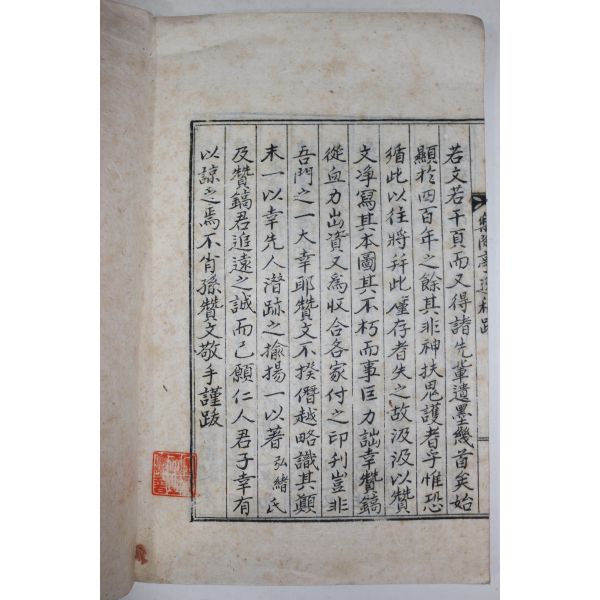 若文若干頁而又得諸先輩遺墨幾首矣始
顯於四百年之餘其非神扶鬼護者乎惟恐
循此以往將幷此僅存者失之故汲汲以贊
文淨寫其本圖其不朽而事巨力詘幸贊鎬
從血力出資又爲收合各家付之印刊豈非
吾門之一大幸耶贊文不揆僭越略識其顚
末一以幸先人潛跡之揄揚一以著弘緖氏
及贊鎬君追遠之誠而已願仁人君子幸有
以諒之焉不肖孫贊文敬手謹跋